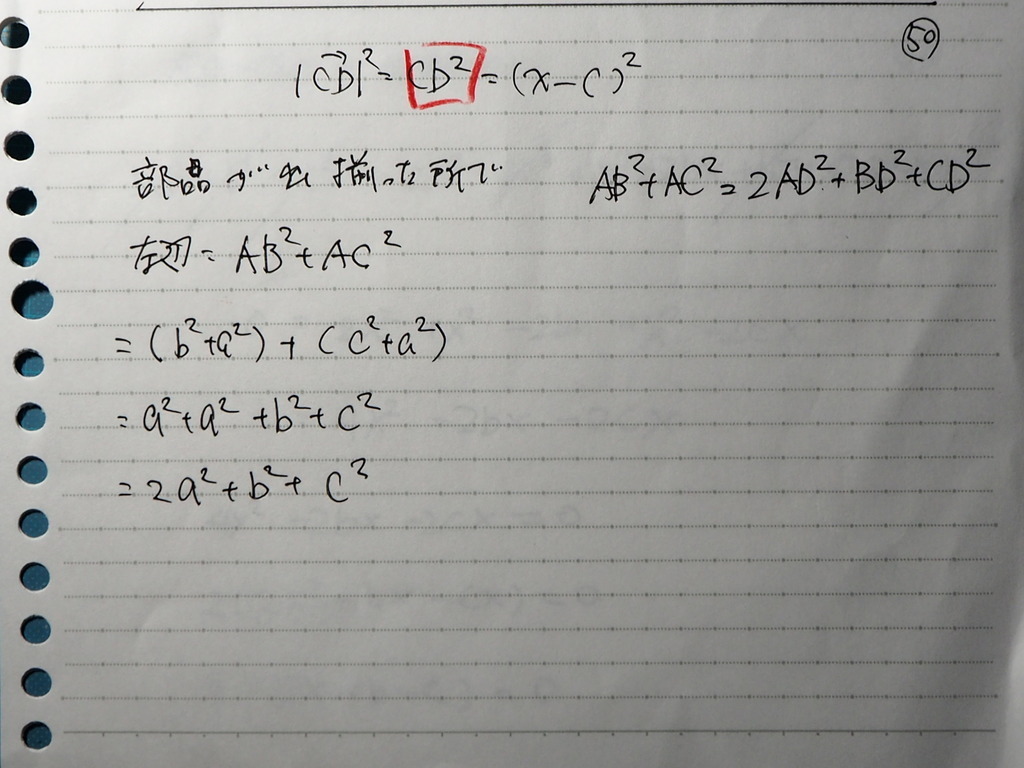 ㊿
|CD→|² = CD² = (x-c)²
部品が出揃った所で AB²+AC²=2AD²+BD²+CD²
左辺= AB²+AC²
= (b²+a²) + (c²+a²)
= a²+a²+b²+c²
= 2a²+b²+c²